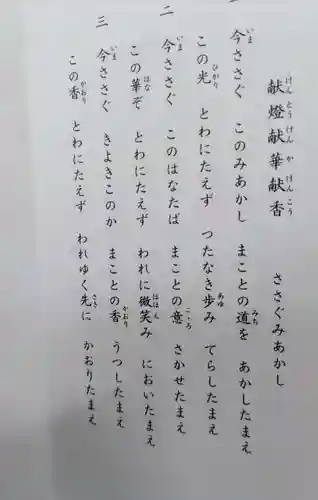 献燈献華献香　ささぐみあかし
一
今ささぐ　このみあかし　まことの道を　あかしたまえ
この光　とわにたえず　つたなき歩み　てらしたまえ
二
今ささぐ　このはなたば　まことの意　さかせたまえ
この華ぞ　とわにたえず　われに微笑み　においたまえ
三
今ささぐ　きよきこのか　まことの香　うつしたまえ
この香　とわにたえず　われゆく先に　かおりたまえ